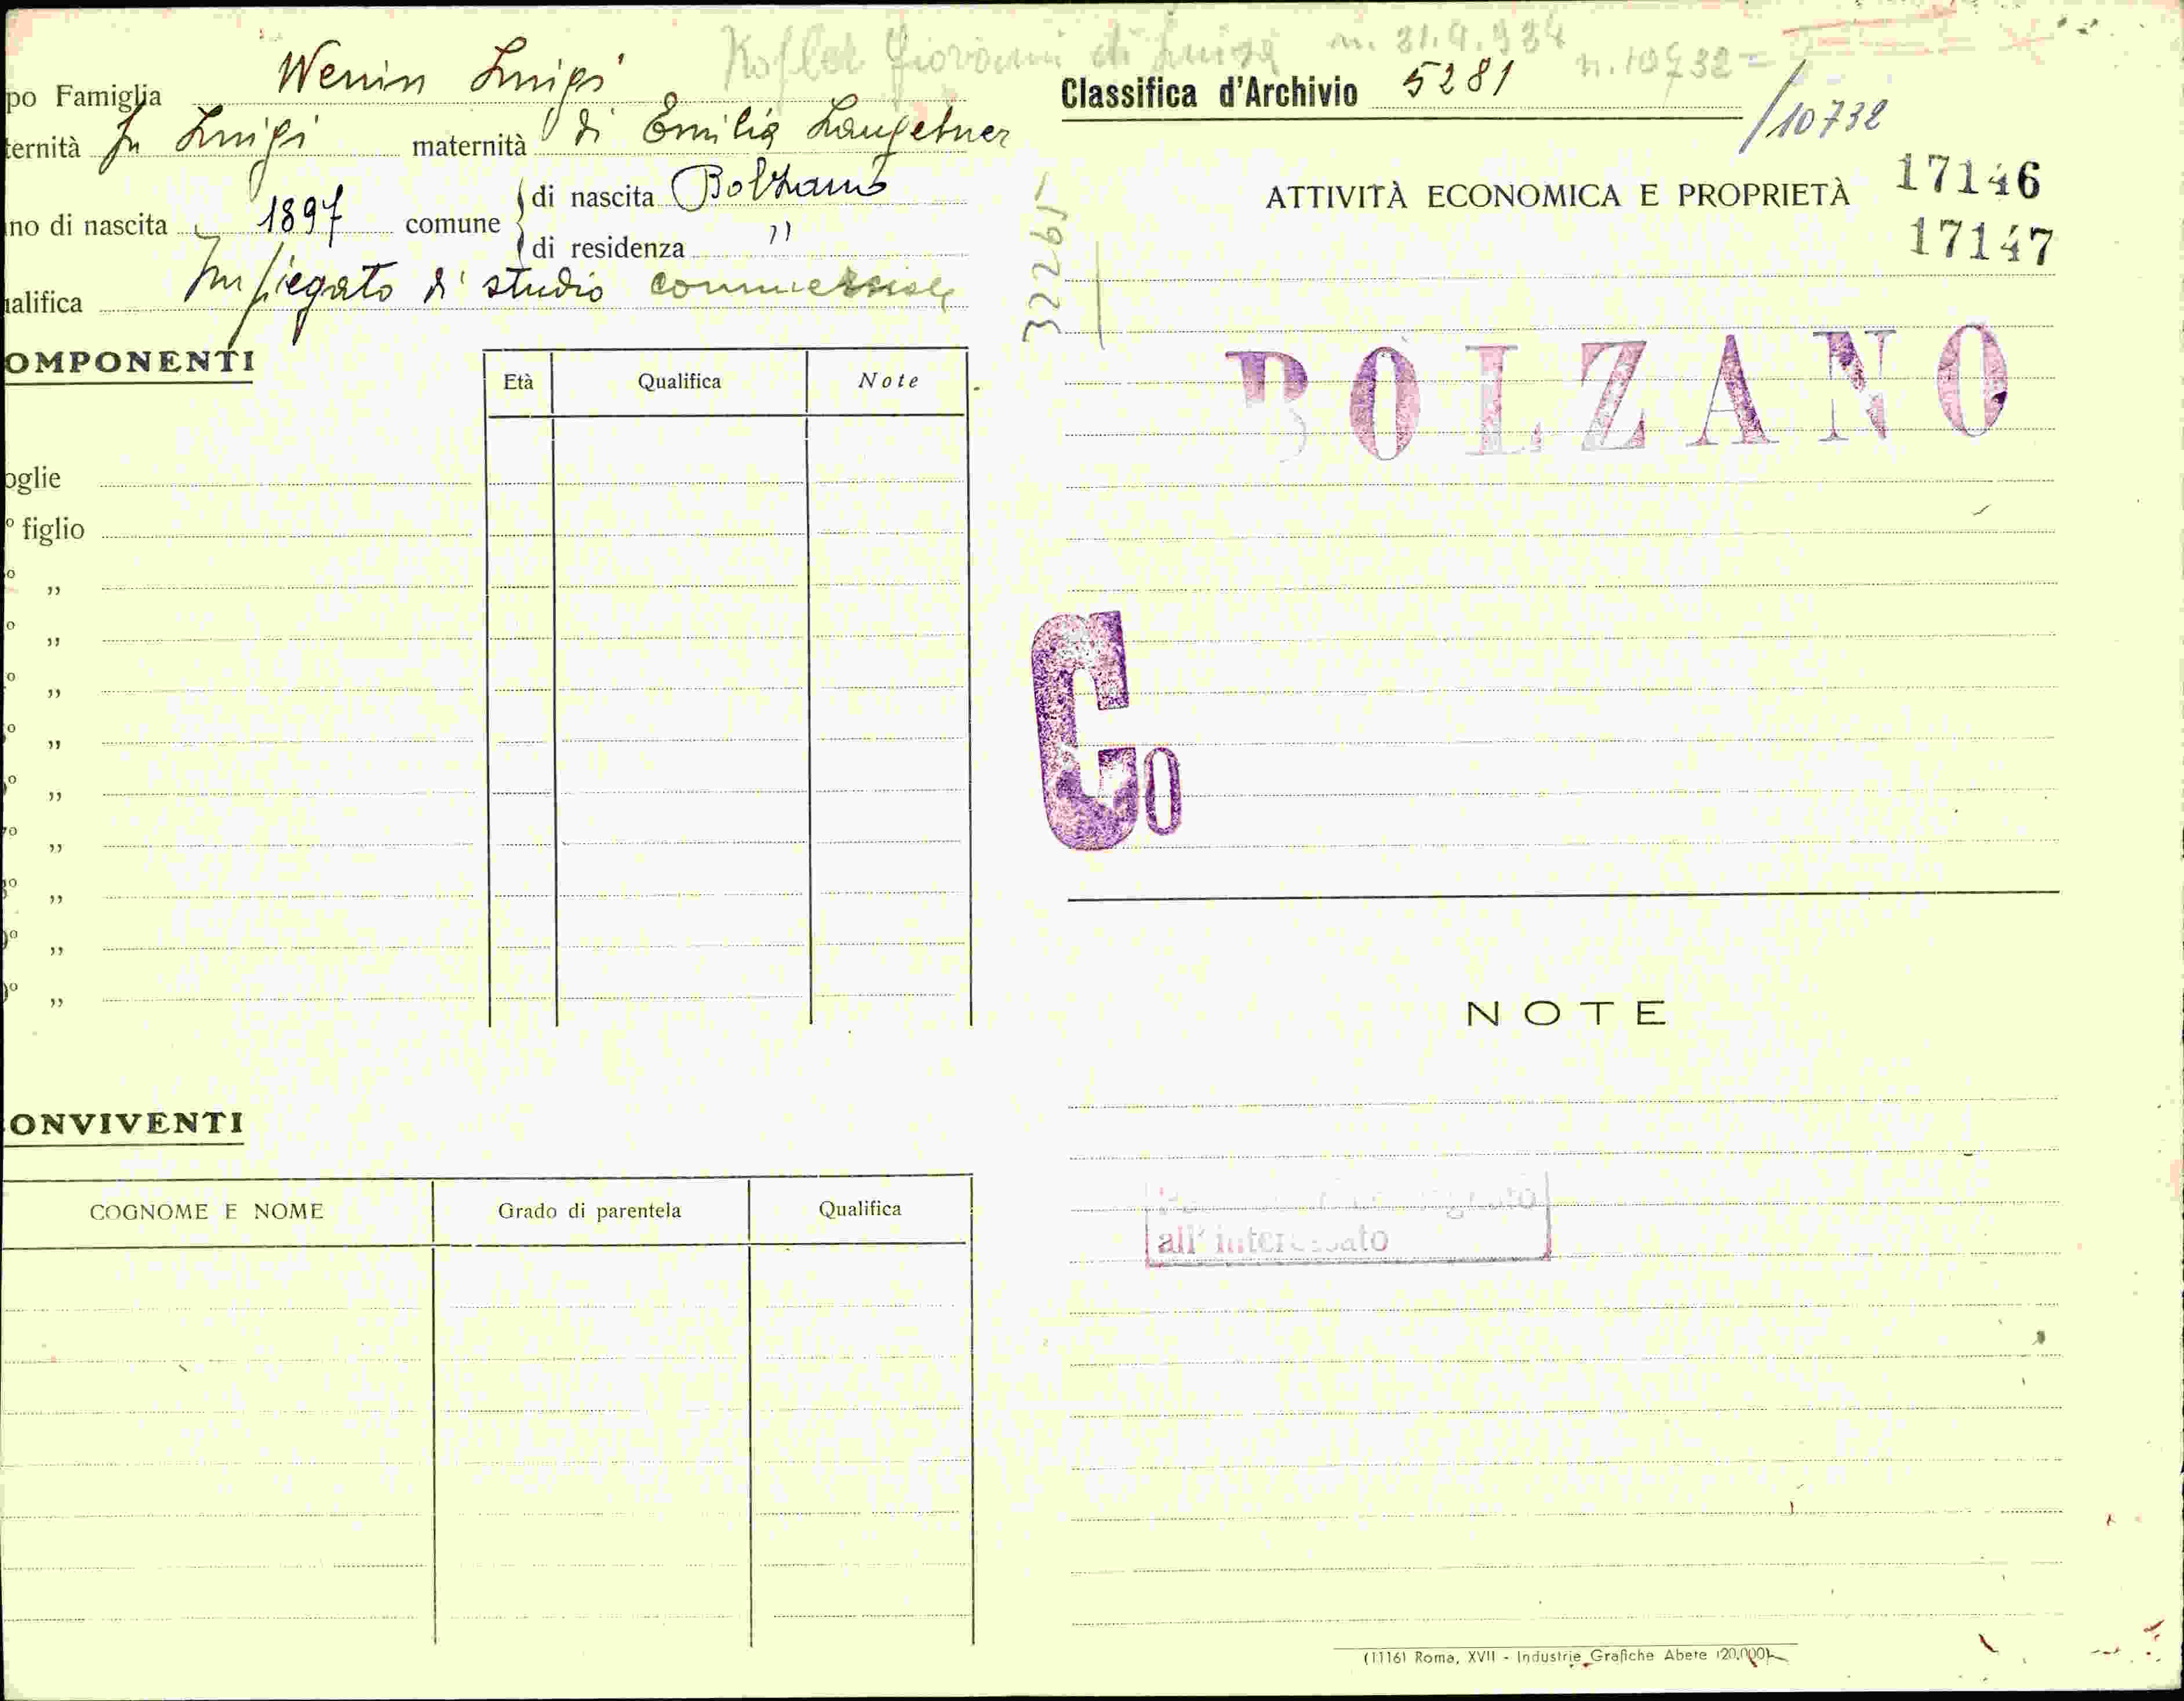 Kofler Giovanni di Luisa n. 31.9.934 n. 10732
po Famiglia Wenin Luigi
ternità fu Luigi maternità di Emilia
no di nascita 1897 comune di nascita Bolzano
di residenza "
alifica Impiegato di studio commerciale
OMPONENTI
Età Qualifica Note
oglie
º figlio
º "
º "
º "
º "
º "
7º "
º "
º "
º "
ONVIVENTI
COGNOME E NOME Grado di parentela Qualifica
Classifica d'Archivio 5281
/10732
ATTIVITÀ ECONOMICA E PROPRIETÀ 17146
17147
322265
BOLZANO
Co
NOTE
all' interessato
(1116) Roma, XVII - Industrie Grafiche Abete (20.000)